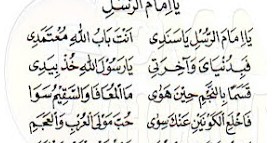 يَا اِمَامَ الرُّسْلِ
يَا اِمَامَ الرُّسْلِ يَاسَنَدِى اَنْتَ بَابُ اللهِ مُعْتَمَدِى
فَبِدُنْيَاىَ وَآخِرَتِى يَارَسُوْلَ اللهِ خُذْ بِيَدِى
قَسَمًا بِالنَّجْمِ حِيْنَ هَوٰى مَاالْمُعَافَا وَالسَّقِيْمُ سَوَا
فَاخْلَعِ الْكَوْنَيْنِ عَنْكَ سِوٰى حُبِّ مَوْلَى الْعُرْبِ وَالْعَجَمِ